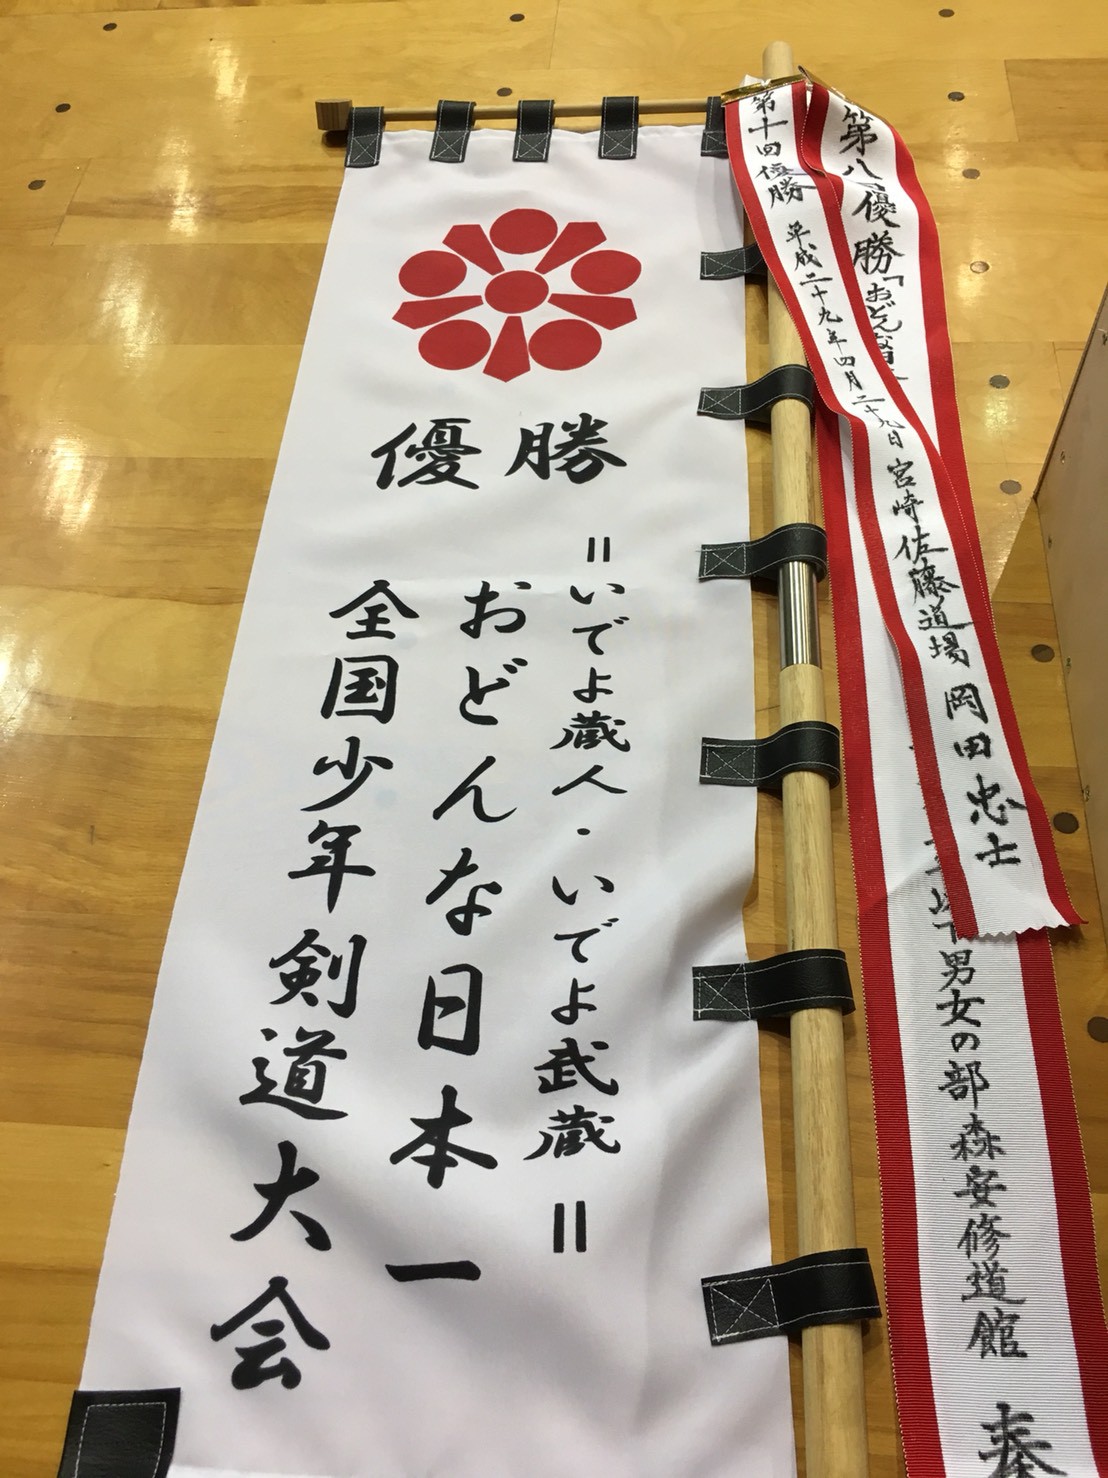 優勝
＝いでよ蔵人・いでよ武蔵＝
おどんな日本一
全国少年剣道大会
第十回優勝 平成二十九年四月二十九日 宮崎佐藤道場 岡田忠士
第八 優勝「おどんな日本
男女の部 森安修道館 奉